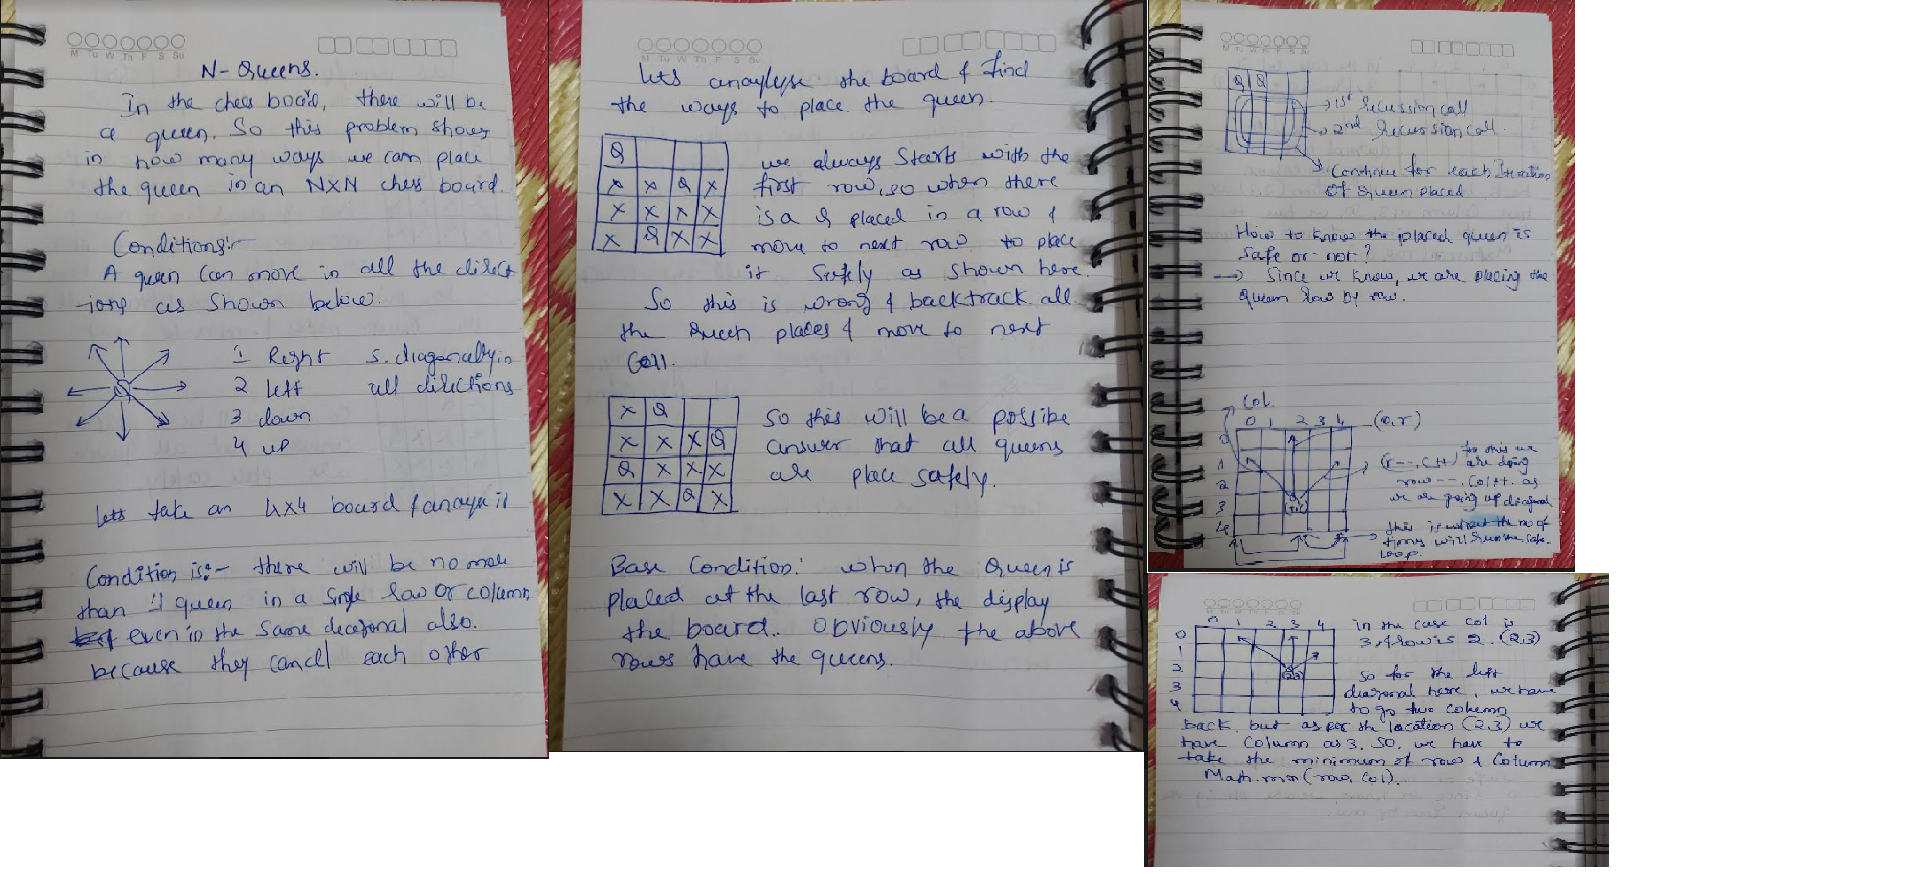 M Tu W Th F S Su
N-Queens.
In the chess board, there will be
a queen. So this problem shows
in how many ways we can place
the queen in an NxN chess board.
Conditions:-
A queen can move in all the direct
-ions as shown below.
1 Right 5. diagonally in
2 left all directions
3 down
4 up
Q
lets take an 4x4 board & anayse it
Condition is:- there will be no more
than 1 queen in a single row or column,
even in the same diagonal also.
because they cancel each other
M Tu W Th F S Su
lets anaylyse the board & find
the ways to place the queen.
Q
X X Q X
X X X X
X Q X X
we always starts with the
first row, so when there
is a Q placed in a row &
move to next row to place
it safely as shown here.
So this is wrong & backtrack all
the Queen places & move to next
Cell.
X Q
X X X Q
Q X X X
X X Q X
So this will be a possibe
answer that all queens
are place safely.
Base Condition: when the Queen is
placed at the last row, the display
the board. Obviously the above
rows have the queens.
M Tu W Th F S Su
Q Q
→ 1st Recussion call
→ 2nd Recussion call.
→ Continue for each Iteration
of Queen placed
How to know the placed queen is
safe or not?
→ Since we know, we are placing the
queen row by row.
Col.
0 1 2 3 4 (0,r)
0
1
2
3
4
(r--, c++) for this we
are doing
row--, col++ as
we are going up diagonal
→ this is the no of
times will run the safe
loop.
M Tu W Th F S Su
0 1 2 3 4
0
1
2
3
4
in the case col is
3, & row is 2. (2,3)
so for the left
diagonal here, we have
to go two column
back. but as per the location (2,3) we
have column as 3. So, we have to
take the minimum of row & column
Math.min(row, col).